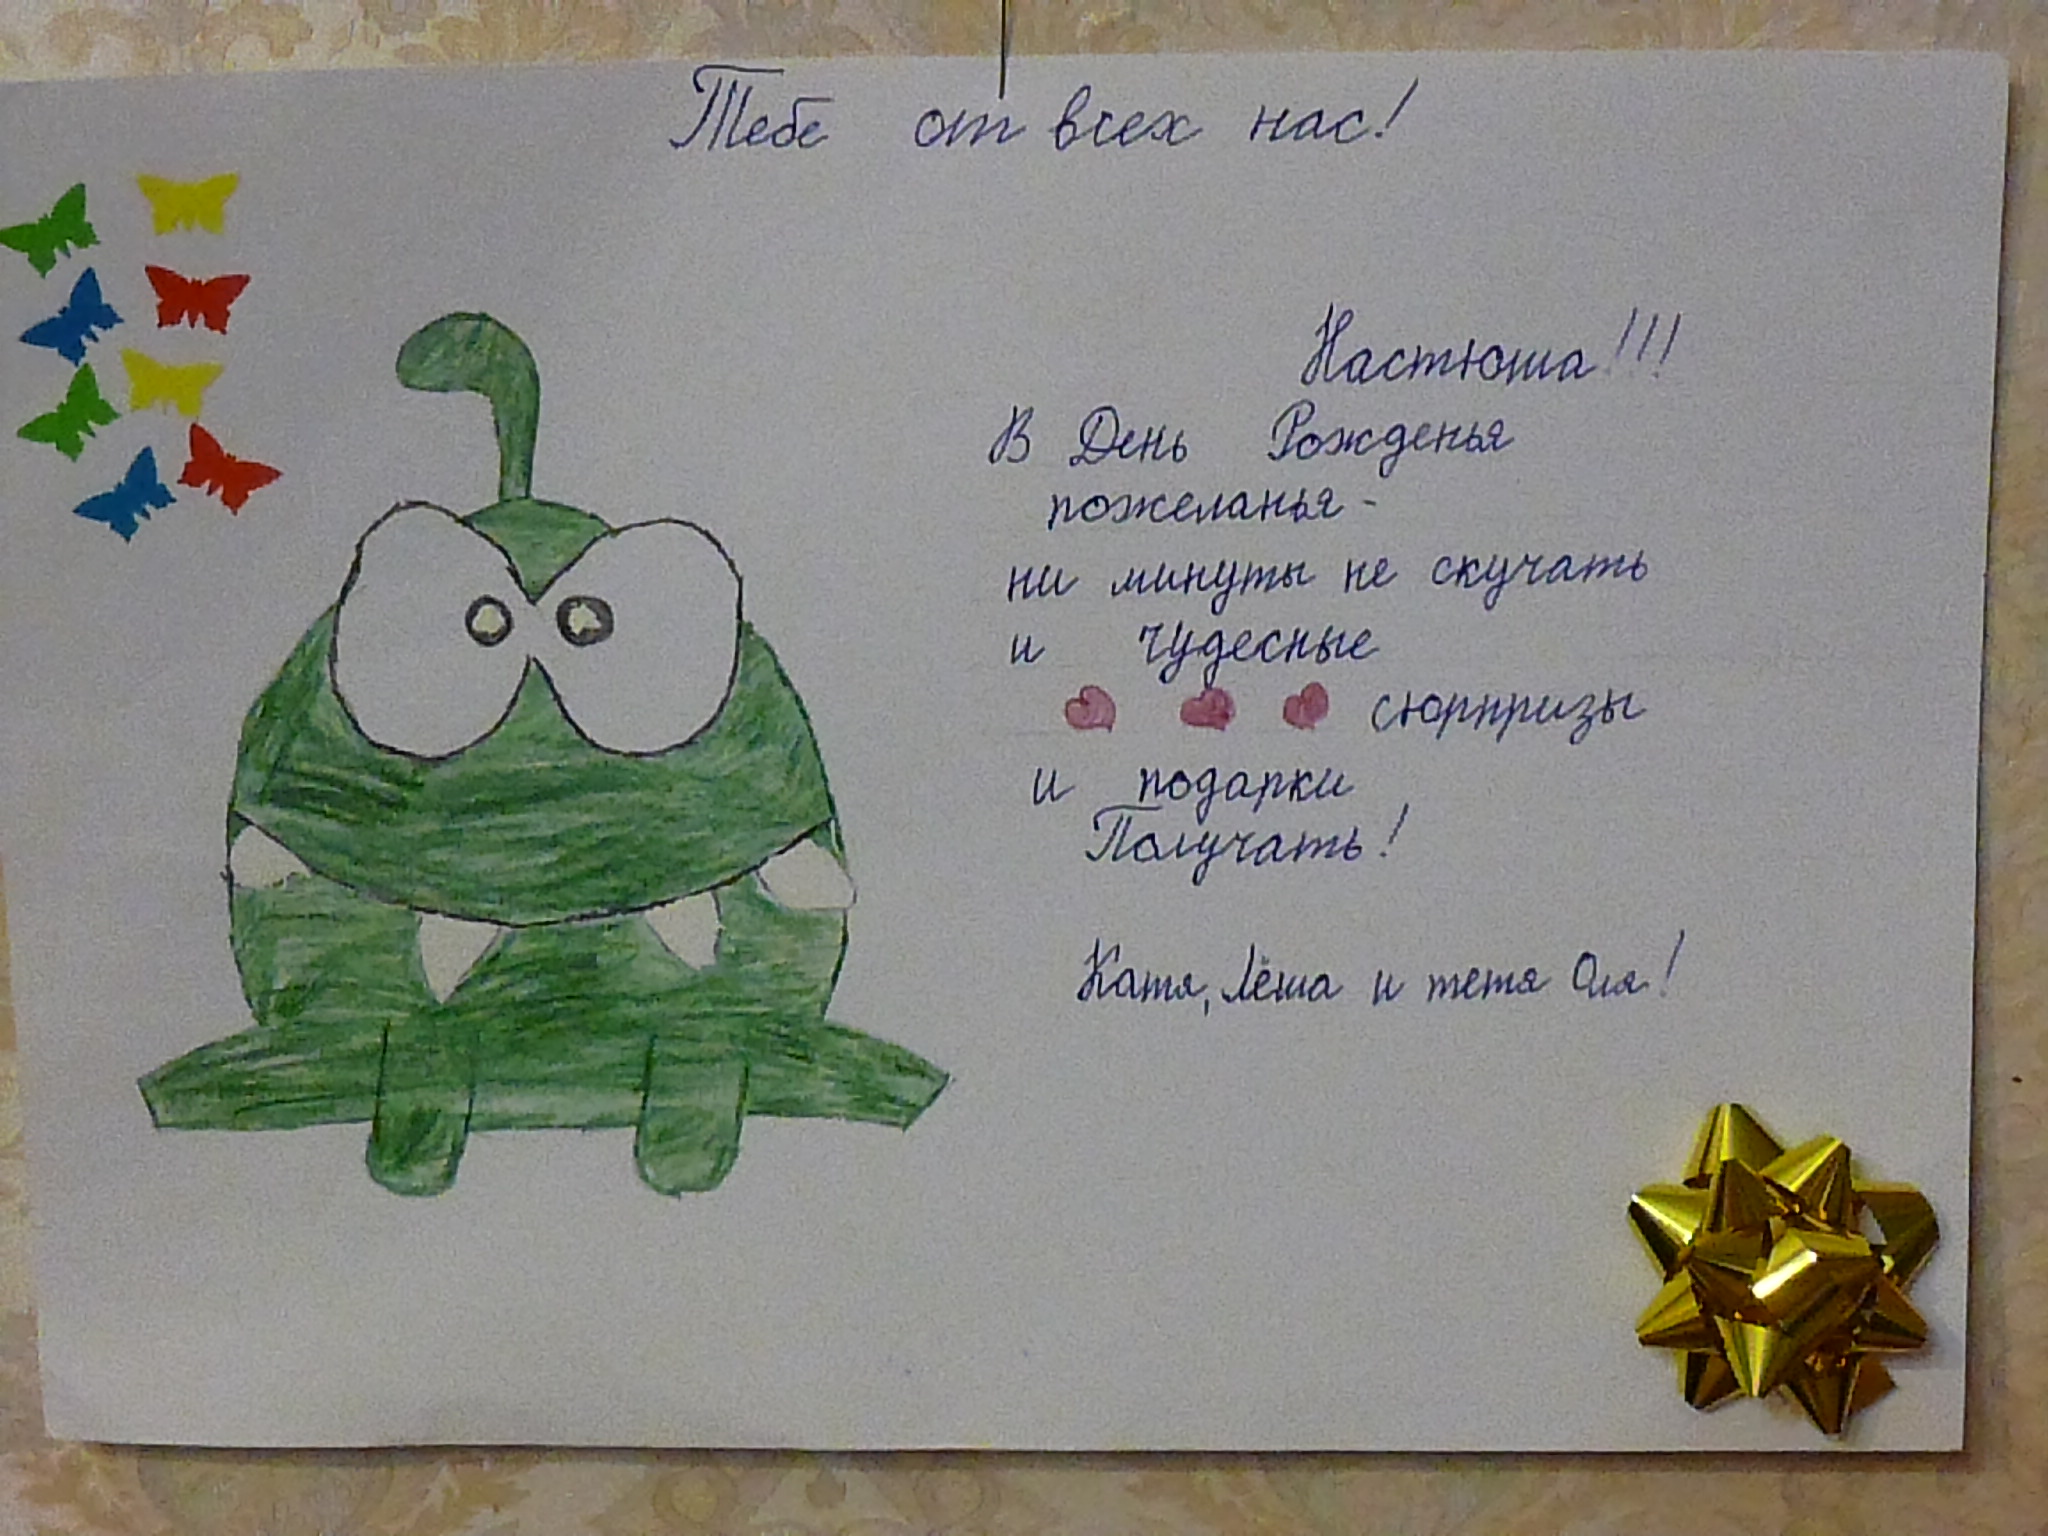 Тебе от всех нас!
Настюша!!!
В День Рожденья
пожеланья -
ни минуты не скучать
и чудесные
сюрпризы
и подарки
Получать!
Катя, Лёша и тетя Оля!